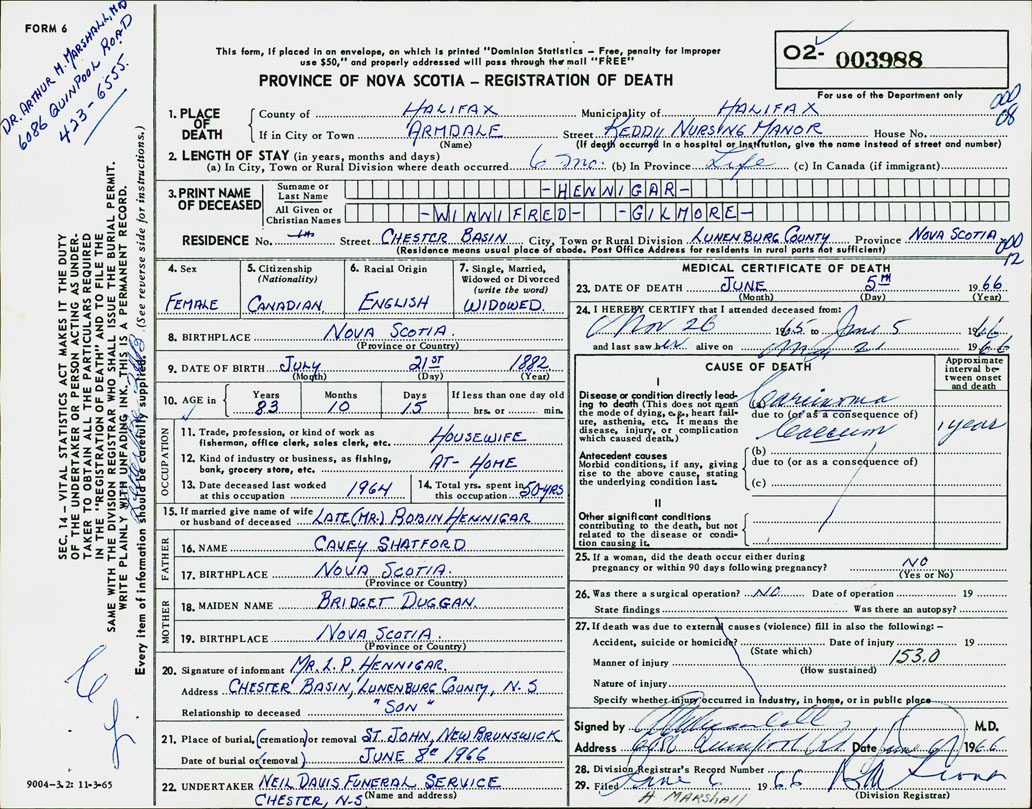 FORM 6
DR. ARTHUR H. MARSHALL, M.D
6086 QUINPOOL ROAD
423-6555.
This form, if placed in an envelope, on which is printed "Dominion Statistics – Free, penalty for improper
use $50," and properly addressed will pass through the mail "FREE"
PROVINCE OF NOVA SCOTIA – REGISTRATION OF DEATH
02- 003988
For use of the Department only
000
08
1. PLACE OF DEATH County of HALIFAX Municipality of HALIFAX
If in City or Town ARMDALE Street KEDDY NURSING MANOR House No.
(Name) (If death occurred in a hospital or institution, give the name instead of street and number)
2. LENGTH OF STAY (in years, months and days)
(a) In City, Town or Rural Division where death occurred 6 mo. (b) In Province Life (c) In Canada (if immigrant)
3. PRINT NAME OF DECEASED Surname or Last Name -HENNIGAR-
All Given or Christian Names -WINNIFRED- -GILMORE-
RESIDENCE No. Street CHESTER BASIN City, Town or Rural Division LUNENBURG COUNTY Province NOVA SCOTIA
(Residence means usual place of abode. Post Office Address for residents in rural parts not sufficient)
000
12
SEC. 14 – VITAL STATISTICS ACT MAKES IT THE DUTY
OF THE UNDERTAKER OR PERSON ACTING AS UNDER-
TAKER TO OBTAIN ALL THE PARTICULARS REQUIRED
IN THE "REGISTRATION OF DEATH" AND TO FILE THE
SAME WITH THE DIVISION REGISTRAR WHO SHALL ISSUE THE BURIAL PERMIT.
WRITE PLAINLY WITH UNFADING INK. THIS IS A PERMANENT RECORD.
Every item of information should be carefully supplied. (See reverse side for instructions.)
4. Sex FEMALE
5. Citizenship (Nationality) CANADIAN.
6. Racial Origin ENGLISH
7. Single, Married, Widowed or Divorced (write the word) WIDOWED.
8. BIRTHPLACE NOVA SCOTIA.
(Province or Country)
9. DATE OF BIRTH JULY 21ST 1882
(Month) (Day) (Year)
10. AGE in Years 83 Months 10 Days 15 If less than one day old hrs. or min.
OCCUPATION
11. Trade, profession, or kind of work as fisherman, office clerk, sales clerk, etc. HOUSEWIFE
12. Kind of industry or business, as fishing, bank, grocery store, etc. AT-HOME
13. Date deceased last worked at this occupation 1964
14. Total yrs. spent in this occupation 50 YRS
15. If married give name of wife or husband of deceased LATE (MR.) ROBIN HENNIGAR
FATHER
16. NAME CAVEY SHATFORD
17. BIRTHPLACE NOVA SCOTIA.
(Province or Country)
MOTHER
18. MAIDEN NAME BRIDGET DUGGAN.
19. BIRTHPLACE NOVA SCOTIA.
(Province or Country)
20. Signature of informant MR. L. P. HENNIGAR.
Address CHESTER BASIN, LUNENBURG COUNTY, N.S
Relationship to deceased "SON"
21. Place of burial, (cremation) or removal ST. JOHN, NEW BRUNSWICK
Date of burial or (removal) JUNE 8 1966
22. UNDERTAKER NEIL DAVIS FUNERAL SERVICE
CHESTER, N.S (Name and address)
MEDICAL CERTIFICATE OF DEATH
23. DATE OF DEATH JUNE 5TH 1966
(Month) (Day) (Year)
24. I HEREBY CERTIFY that I attended deceased from:
Nov 26 1965 to June 5 1966
and last saw her alive on May 31 1966
CAUSE OF DEATH
Approximate interval between onset and death
I
Disease or condition directly leading to death (This does not mean the mode of dying, e.g., heart failure, asthenia, etc. It means the disease, injury, or complication which caused death.)
(a) Carcinoma
due to (or as a consequence of)
Caecum
1 year
Antecedent causes
Morbid conditions, if any, giving rise to the above cause, stating the underlying condition last.
(b)
due to (or as a consequence of)
(c)
II
Other significant conditions contributing to the death, but not related to the disease or condition causing it.
25. If a woman, did the death occur either during pregnancy or within 90 days following pregnancy? NO
(Yes or No)
26. Was there a surgical operation? NO. Date of operation 19
State findings Was there an autopsy?
27. If death was due to external causes (violence) fill in also the following:–
Accident, suicide or homicide? Date of injury 19
(State which)
Manner of injury 153.0
(How sustained)
Nature of injury
Specify whether injury occurred in industry, in home, or in public place
Signed by M.D.
Address 6086 Quinpool Rd. Date June 6/ 1966
28. Division Registrar's Record Number
29. Filed June 6 1966
(Division Registrar)
H MARSHALL
9004-3.2: 11-3-65